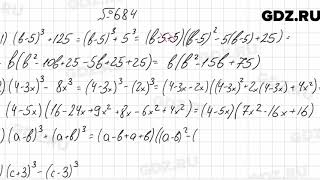 GDZ.RU
№684
1) (b-5)³+125 = (b-5)³+5³ = (b-5+5)((b-5)²-5(b-5)+25) =
= b(b²-10b+25-5b+25+25) = b(b²-15b+75)
(4-3x)³-8x³ = (4-3x)³-(2x)³ = (4-3x-2x)((4-3x)²+2x(4-3x)+4x²)
(4-5x)(16-24x+9x²+8x-6x²+4x²) = (4-5x)(7x²-16x+16)
) (a-b)³+(a+b)³ = (a-b+a+b)((a-b)²-(
) (c+3)³-(c-3)³